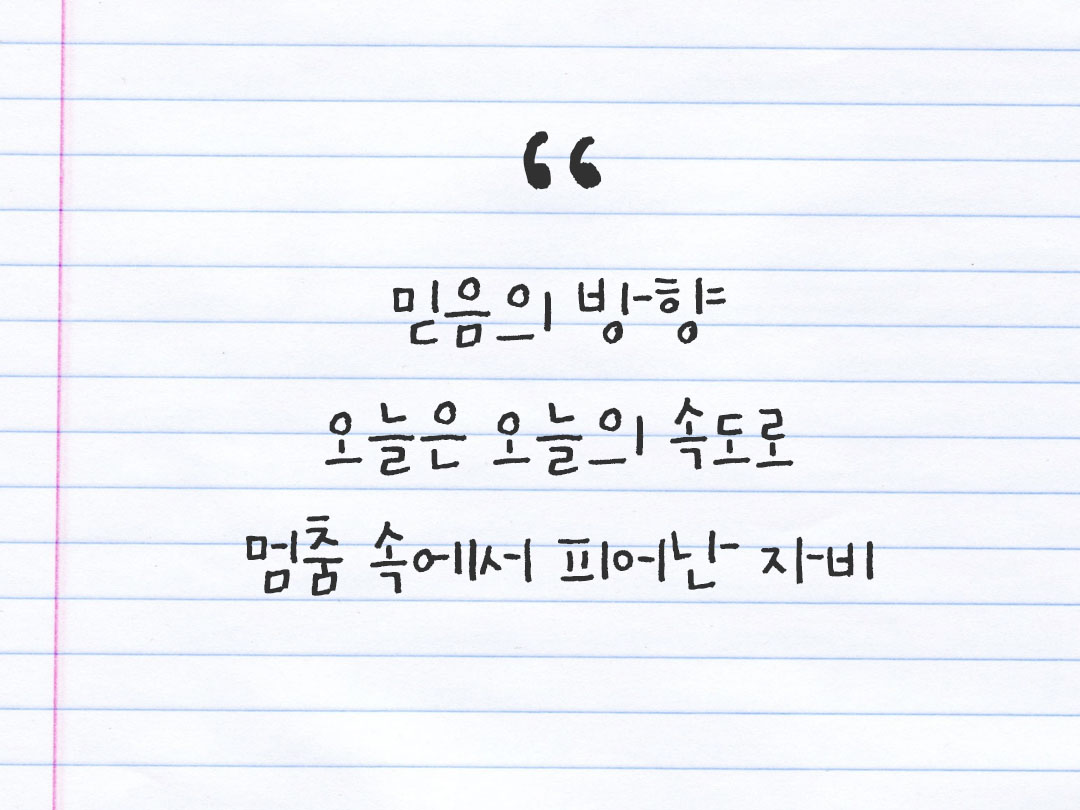 “
믿음의 방향
오늘은 오늘의 속도로
멈춤 속에서 피어난 자비